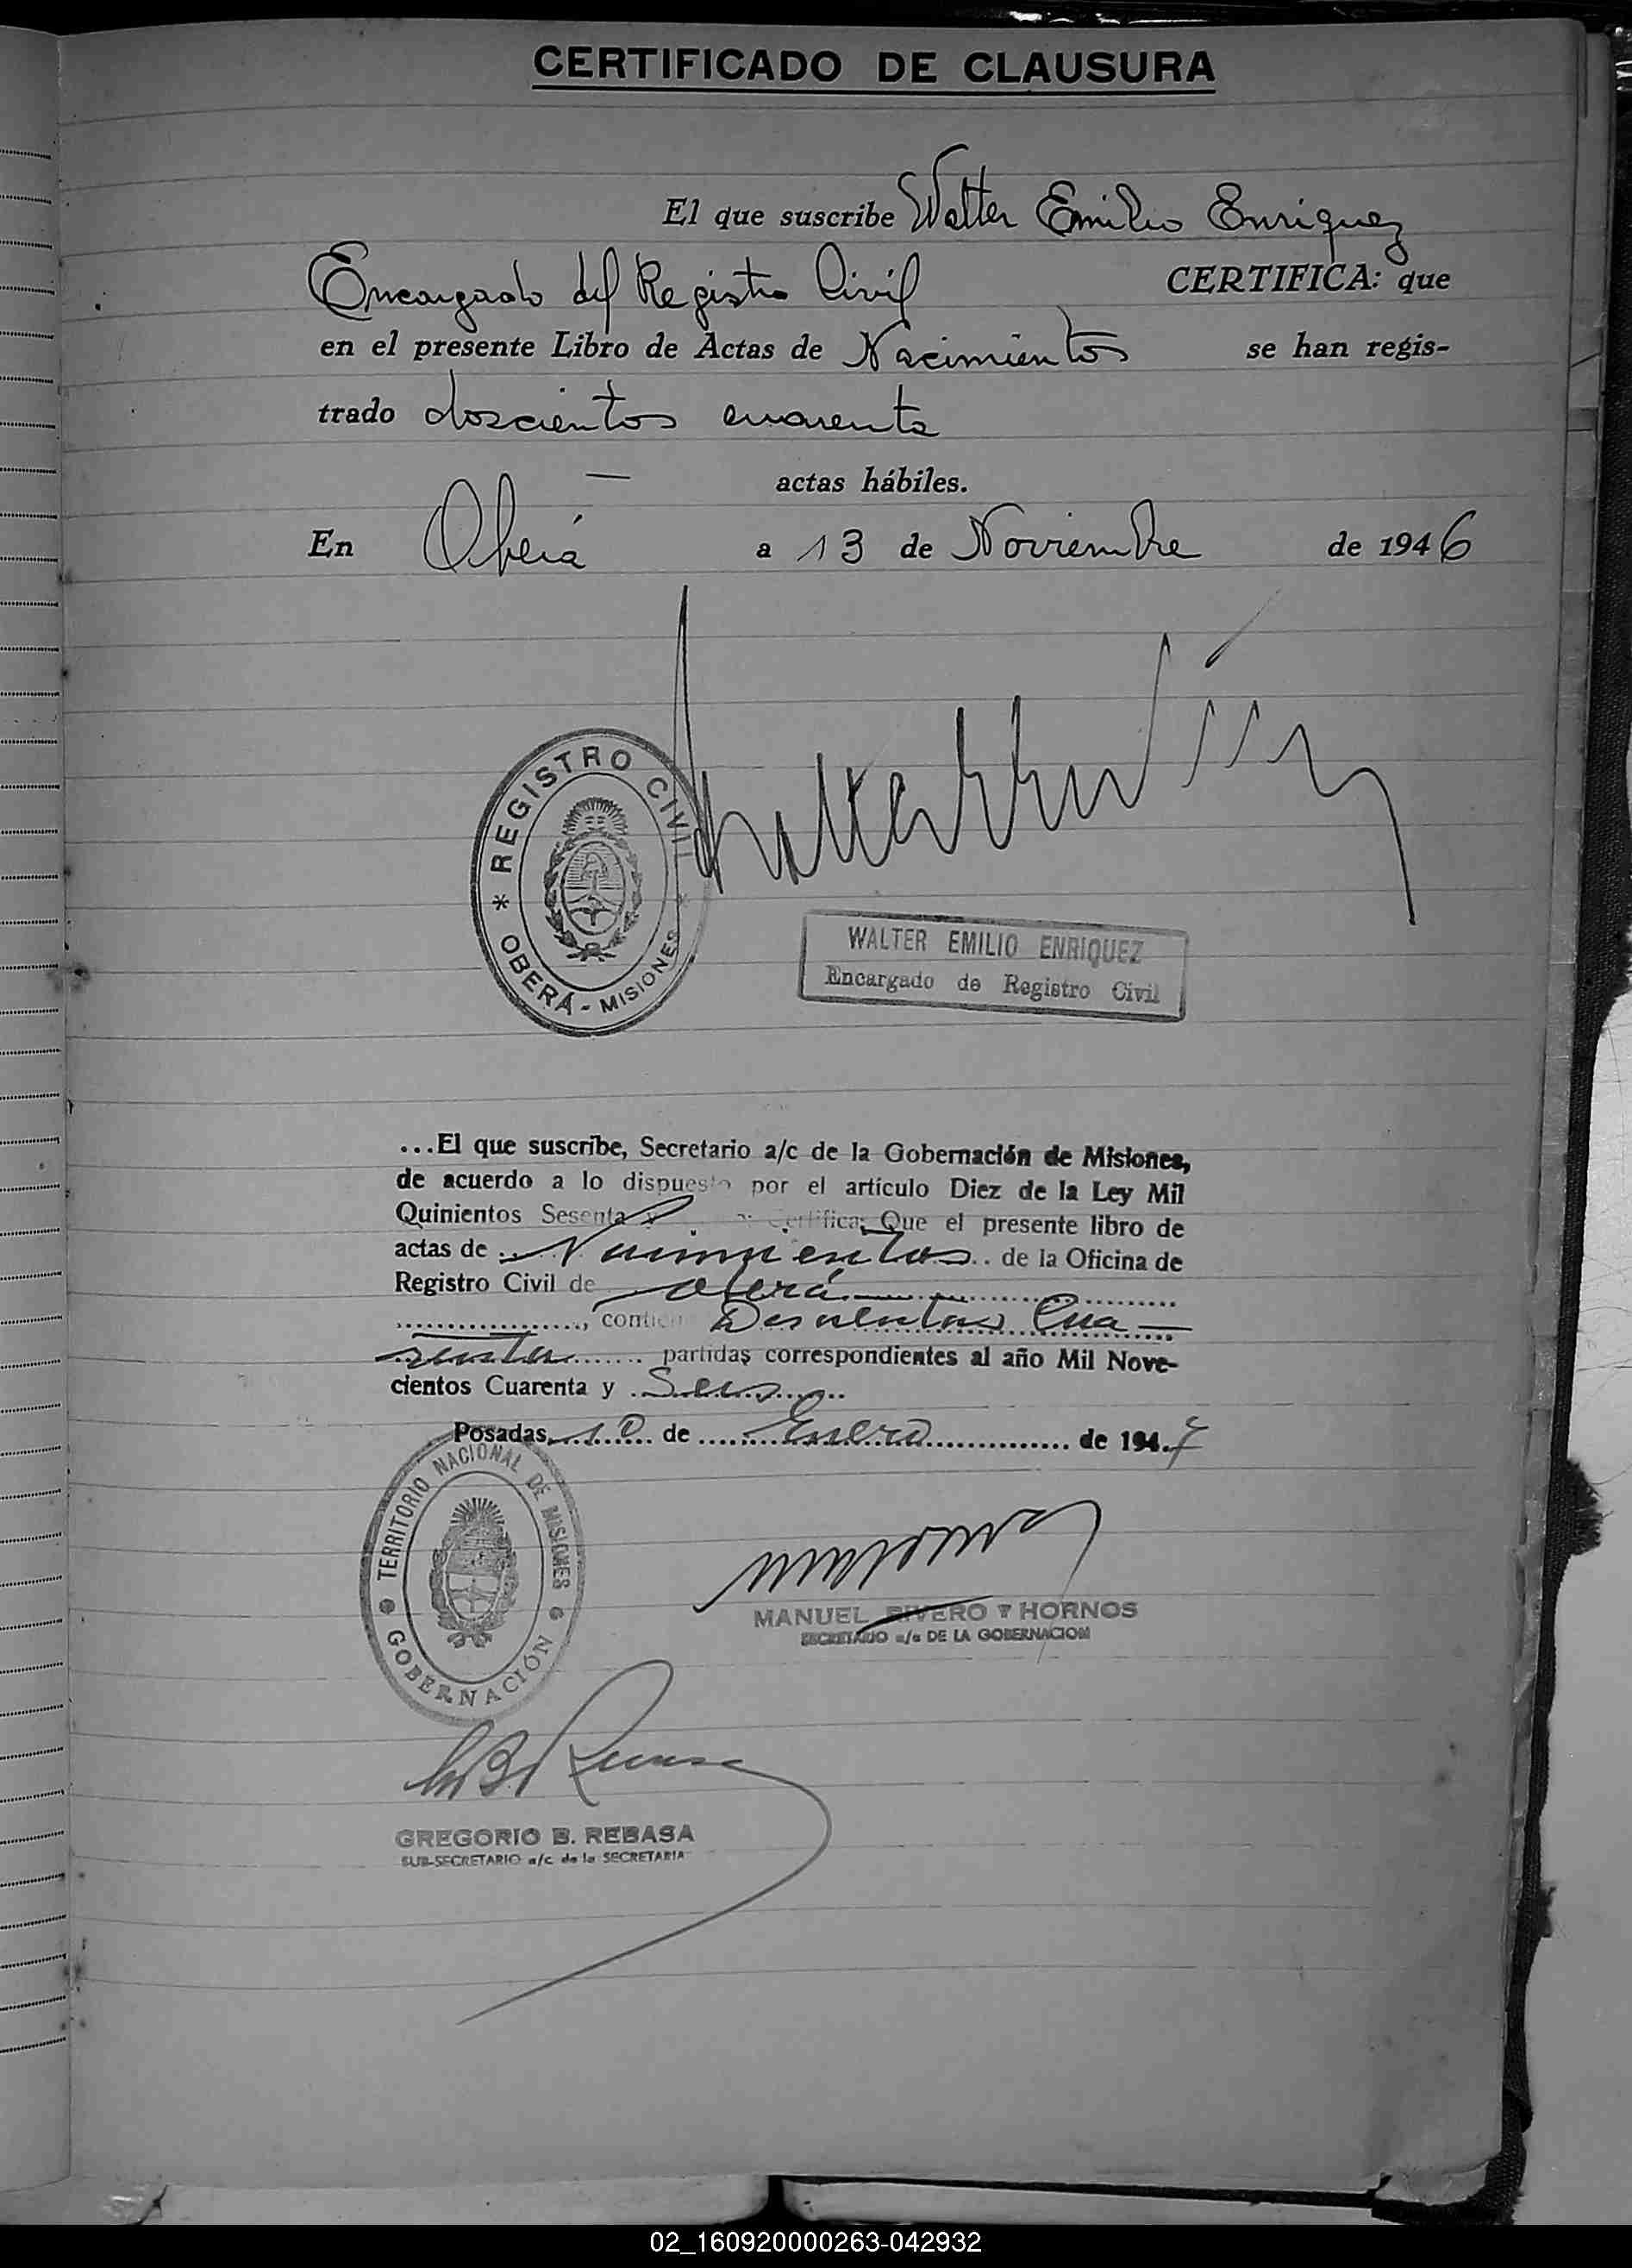 CERTIFICADO DE CLAUSURA
El que suscribe Walter Emilio Enriquez
Encargado del Registro Civil CERTIFICA: que
en el presente Libro de Actas de Nacimientos se han regis-
trado doscientos cuarenta
— actas hábiles.
En Oberá a 13 de Noviembre de 1946
REGISTRO CIVIL
OBERÁ - MISIONES
WALTER EMILIO ENRIQUEZ
Encargado de Registro Civil
...El que suscribe, Secretario a/c de la Gobernación de Misiones,
de acuerdo a lo dispuesto por el artículo Diez de la Ley Mil
Quinientos Sesenta y Certifica: Que el presente libro de
actas de Nacimientos de la Oficina de
Registro Civil de Oberá
, contiene Doscientos Cua-
renta partidas correspondientes al año Mil Nove-
cientos Cuarenta y Seis
Posadas, 10 de Enero de 1947
TERRITORIO NACIONAL DE MISIONES
GOBERNACIÓN
MANUEL RIVERO Y HORNOS
SECRETARIO a/c DE LA GOBERNACION
GREGORIO B. REBASA
SUB-SECRETARIO a/c de la SECRETARIA
02_160920000263-042932